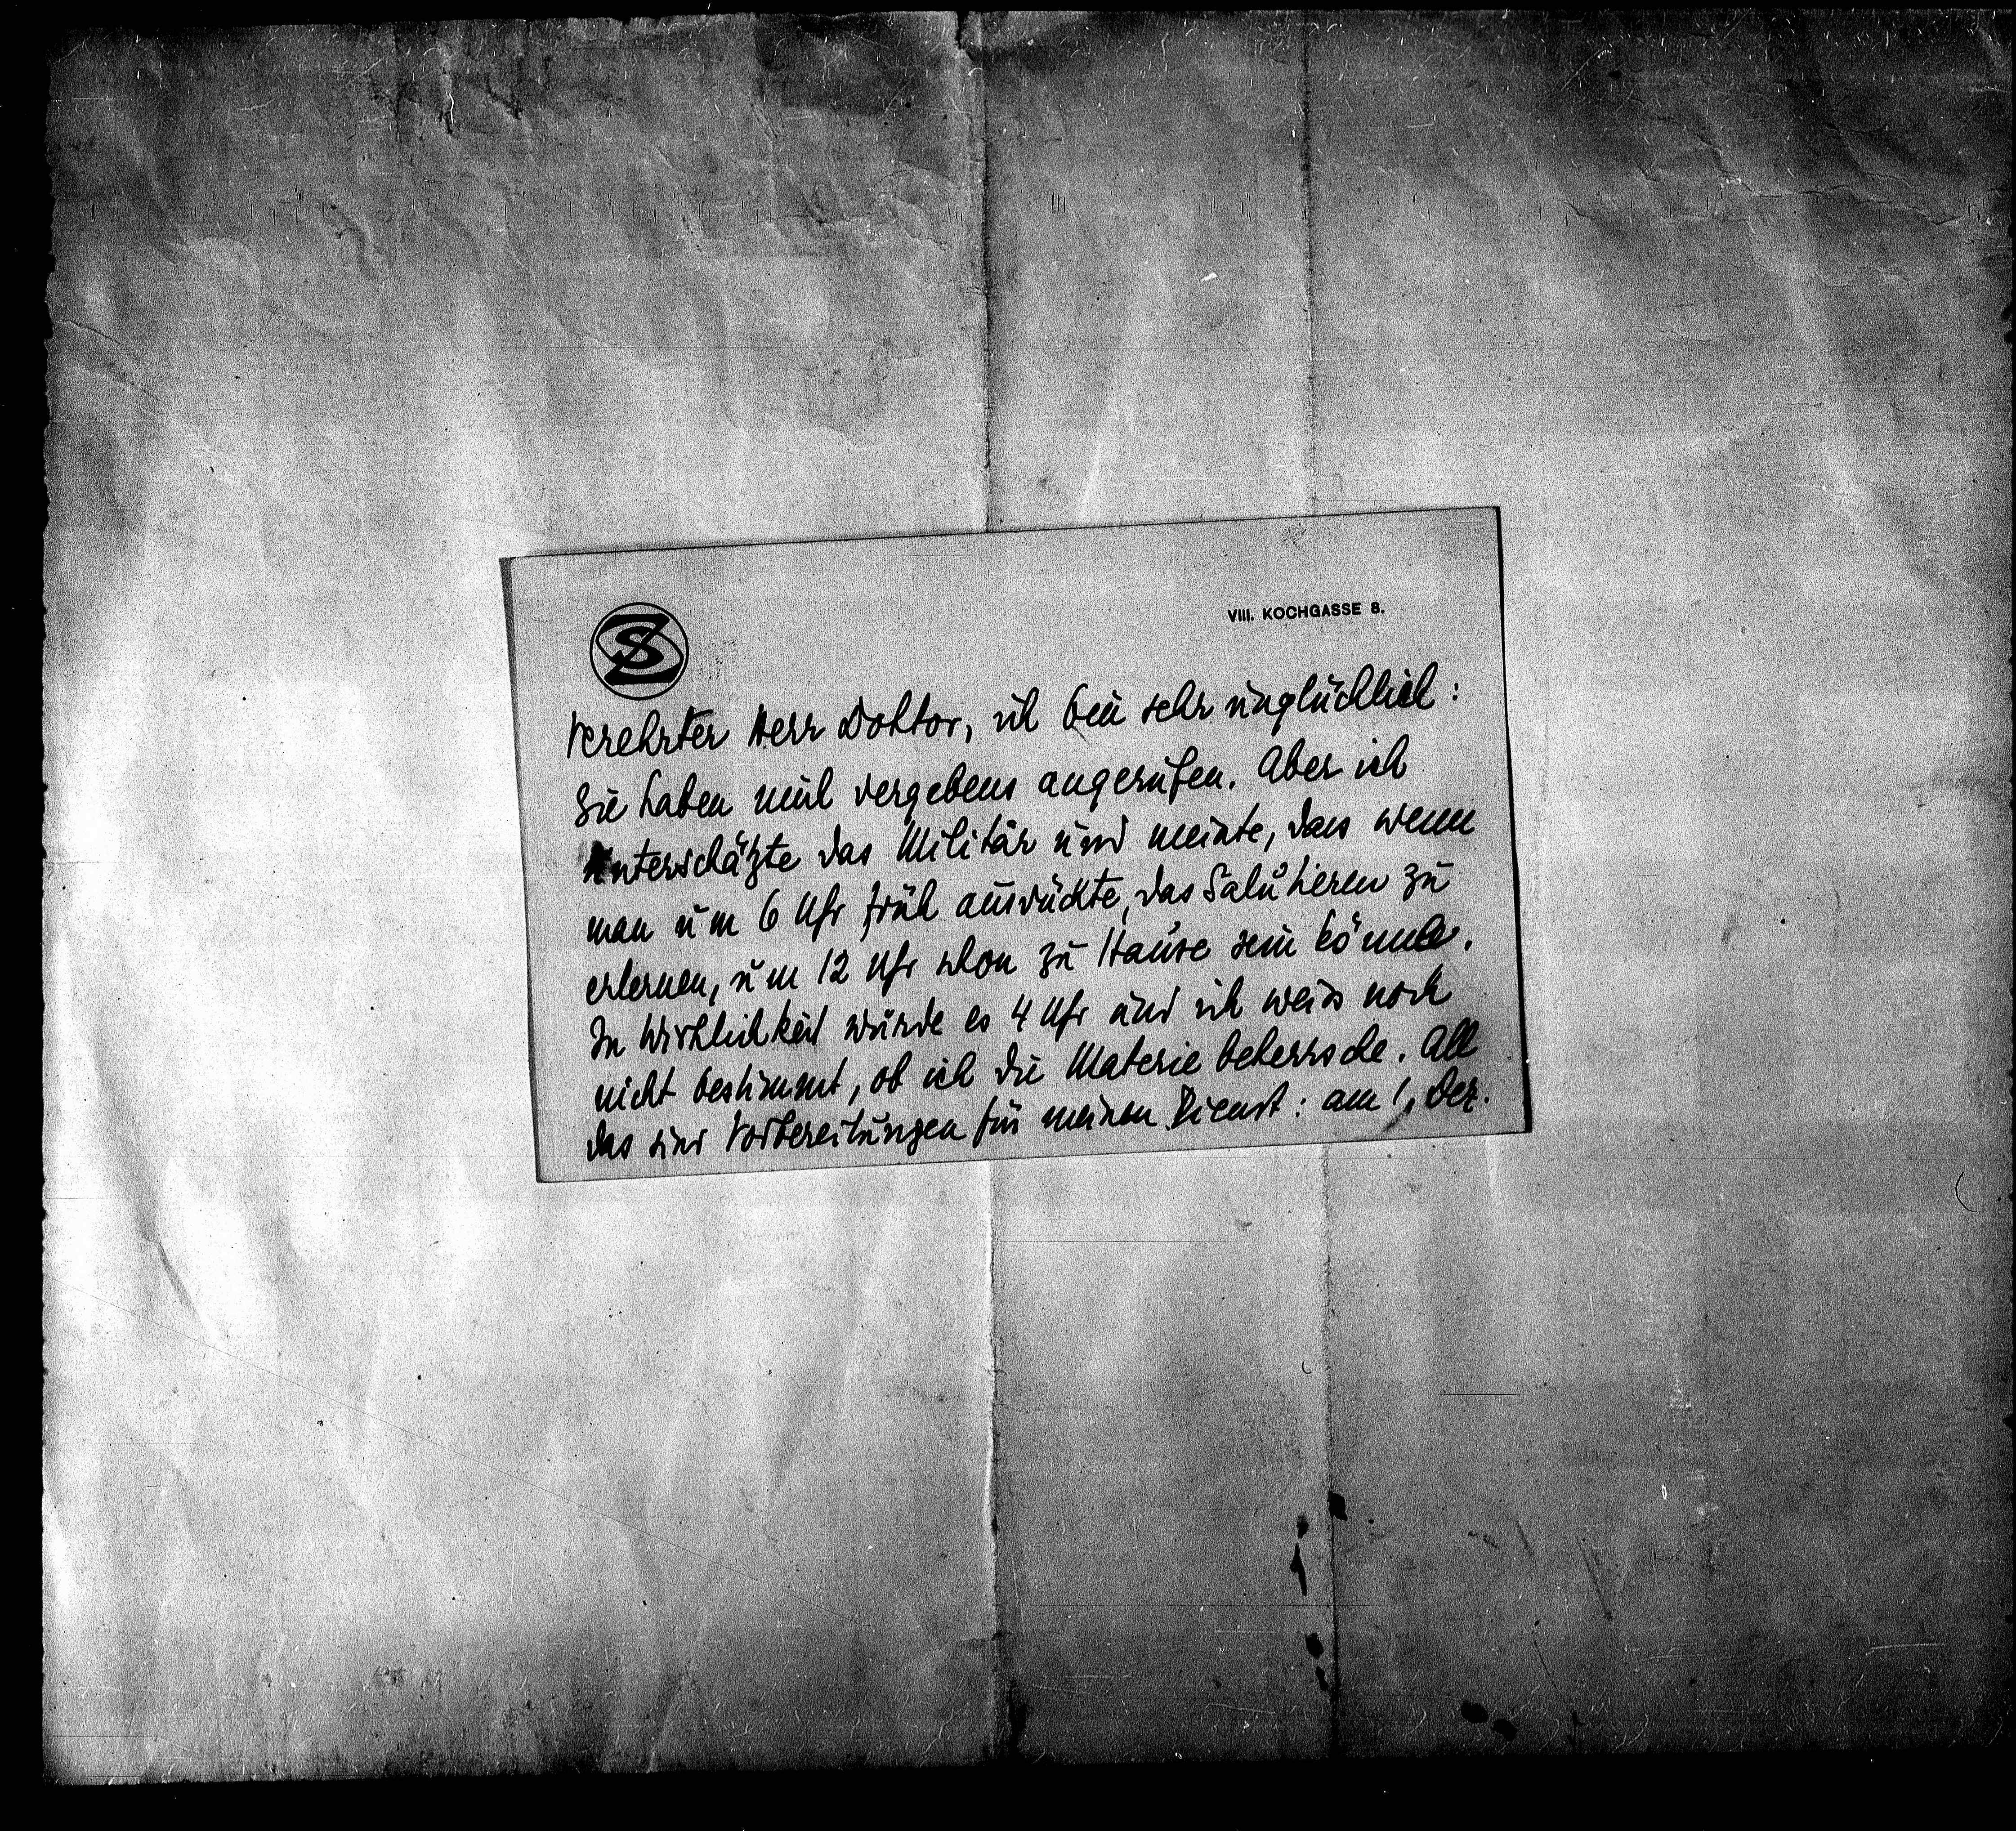 SZ
VIII. KOCHGASSE 8.
Verehrter Herr Doktor, ich bin sehr unglücklich:
Sie haben mich vergebens angerufen. Aber ich
unterschätzte das Militär und meinte, dass wenn
man um 6 Uhr früh ausrückte, das Salutieren zu
erlernen, um 12 Uhr schon zu Hause sein könnte.
In Wirklichkeit wurde es 4 Uhr und ich weiss noch
nicht bestimmt, ob ich die Materie beherrsche. All
das sind Vorbereitungen für meinen Dienst: am 1. Dez.